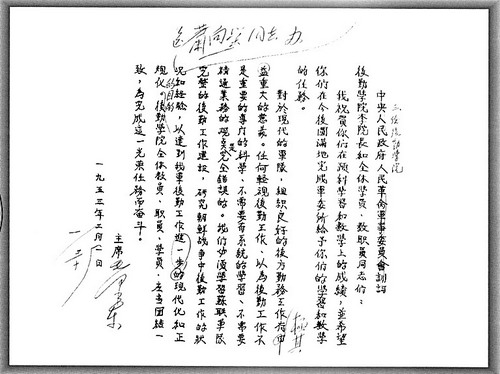 送蕭向荣同志办
中央人民政府人民革命軍事委員會訓詞
後勤學院李院長和全体學員、教職員同志們:
我祝賀你們在預科學習和教學上的成績，並希望
你們在今後圓滿地完成軍委所給予你們的學習和教學
的任務。
對於現代的軍隊，組織良好的後方勤務工作有
極其
重大的意義。任何輕視後勤工作、以為後勤工作不
是重要的專門的科學、不需要有系統的學習、不需要
精通業務的观点是完全錯誤的。我們必須學習蘇聯軍隊
完整的後勤工作建設，研究朝鮮戰爭中後勤工作的狀
況和經驗，以達到我軍後勤工作進一步的現代化和正
規化的目的。後勤學院全体教員、職員、學員，应当團結一
致，為完成這一光荣任務而奮斗。
一九五三年二月 日
主席 毛澤東